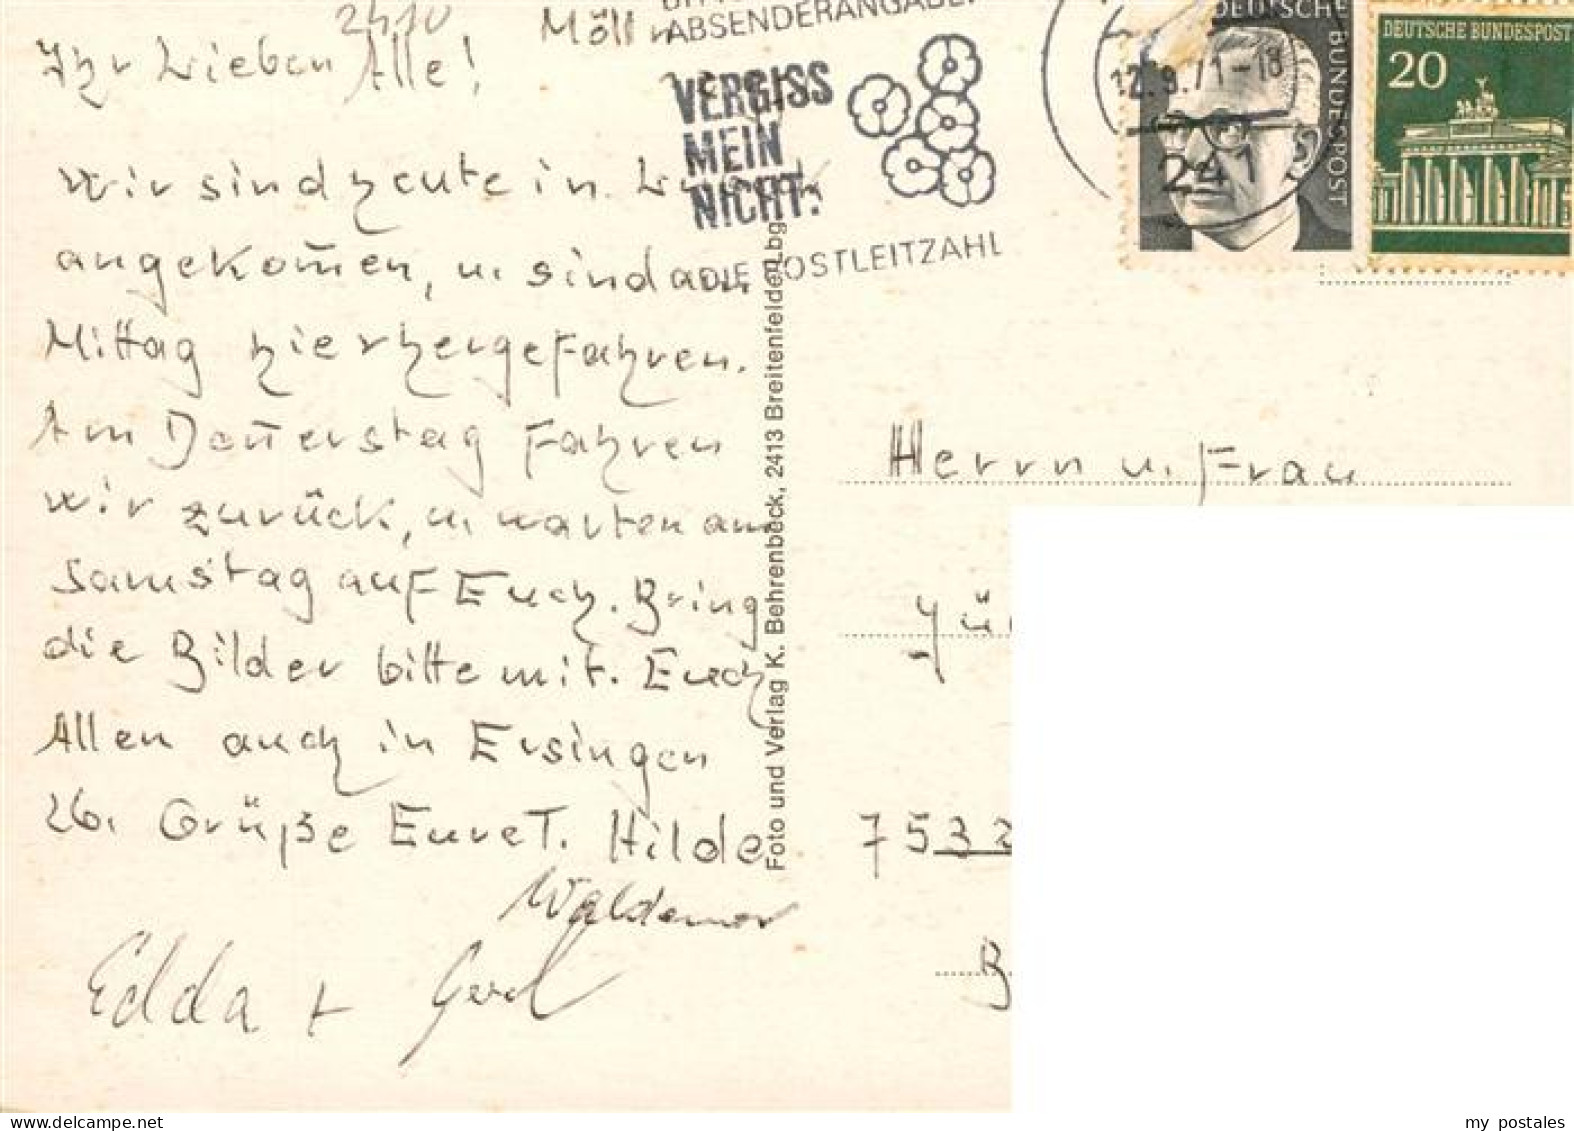 2410 Mölln
Ihr Lieben Alle!
Wir sind heute in
angekom̄en, u. sind am
Mittag hierhergefahren.
Am Don̄erstag fahren
wir zurück, u. warten am
Samstag auf Euch. Bring
die Bilder bitte mit. Euch
Allen auch in Ersingen
Grüße Eure T. Hilde
Waldemar
Edda + Gerd
Foto und Verlag K. Behrenbeck, 2413 Breitenfelde/Lbg
ABSENDERANGABE
VERGISS
MEIN
NICHT!
DIE POSTLEITZAHL
12.9.71-18
241
DEUTSCHE BUNDESPOST
DEUTSCHE BUNDESPOST
20
Herrn u. Frau
7532
my postales